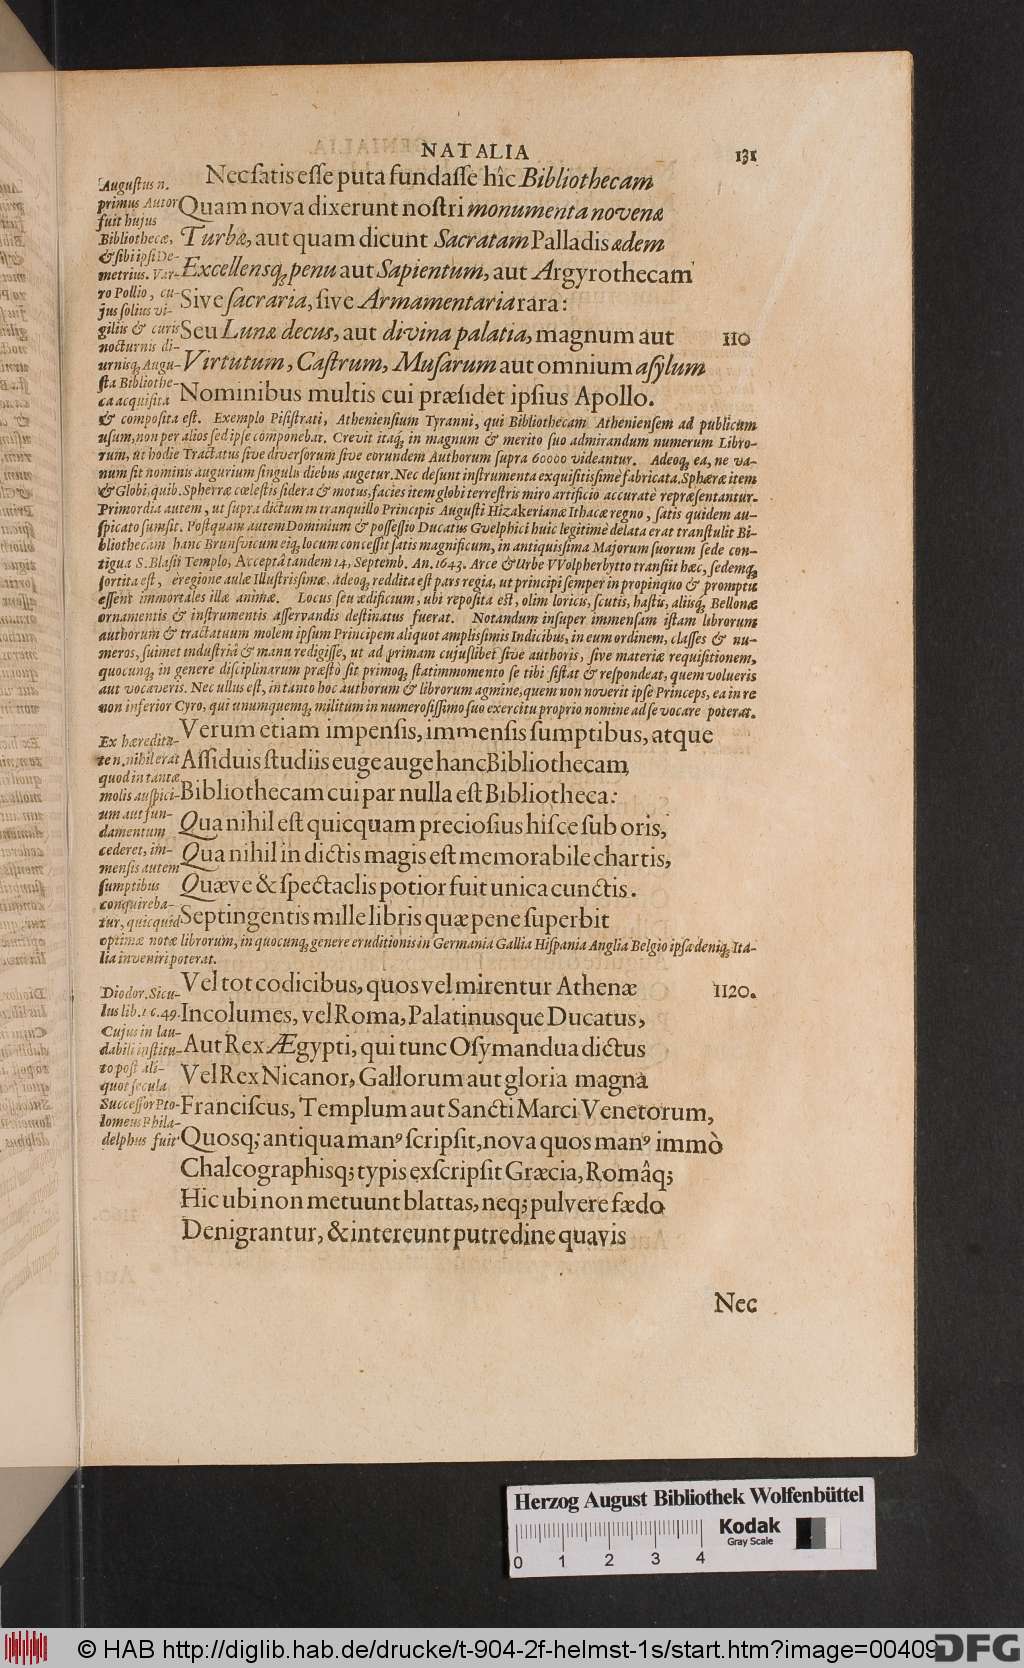 NATALIA 131
Nec satis esse puta fundasse hîc Bibliothecam
Augustus n.
primus Autor
fuit hujus
Bibliothecæ,
& sibi ipsi De-
metrius. Var-
ro Pollio, cu-
jus solius vi-
giliis & curis
nocturnis di-
urnisq; Augu-
sta Bibliothe-
ca acquisita
Quam nova dixerunt nostri monumenta novenæ
Turbæ, aut quam dicunt Sacratam Palladis ædem
Excellensq; penu aut Sapientum, aut Argyrothecam
Sive sacraria, sive Armamentaria rara:
Seu Lunæ decus, aut divina palatia, magnum aut 110
Virtutum, Castrum, Musarum aut omnium asylum
Nominibus multis cui præsidet ipsius Apollo.
& composita est. Exemplo Pisistrati, Atheniensium Tyranni, qui Bibliothecam Atheniensem ad publicum
usum, non per alios sed ipse componebat. Crevit itaq; in magnum & merito suo admirandum numerum Libro-
rum, ut hodie Tractatus sive diversorum sive eorundem Authorum supra 60000 videantur. Adeoq; ea, ne va-
num sit nominis augurium singulis diebus augetur. Nec desunt instrumenta exquisitissimè fabricata, Sphæræ item
& Globi, quib. Spherræ cœlestis sidera & motus, facies item globi terrestris miro artificio accuratè repræsentantur.
Primordia autem, ut supra dictum in tranquillo Principis Augusti Hizakerianæ Ithacæ regno, satis quidem au-
spicato sumsit. Postquam autem Dominium & possessio Ducatus Guelphici huic legitimè delata erat transtulit Bi-
bliothecam hanc Brunsvicum eiq; locum concessit satis magnificum, in antiquissima Majorum suorum sede con-
tigua S. Blasii Templo, Acceptâ tandem 14, Septemb. An. 1643. Arce & Urbe VVolpherbytto transiit hæc, sedemq;
sortita est, è regione aulæ Illustrissimæ. Adeoq; reddita est pars regia, ut principi semper in propinquo & promptu
essent immortales illæ animæ. Locus seu ædificium, ubi reposita est, olim loricis, scutis, hastis, aliisq; Bellonæ
ornamentis & instrumentis asservandis destinatus fuerat. Notandum insuper immensam istam librorum
authorum & tractatuum molem ipsum Principem aliquot amplissimis Indicibus, in eum ordinem, classes & nu-
meros, suimet industriâ & manu redigisse, ut ad primam cujuslibet sive authoris, sive materiæ requisitionem,
quocunq; in genere disciplinarum præsto sit primoq; statim momento se tibi sistat & respondeat, quem volueris
aut vocaveris. Nec ullus est, in tanto hoc authorum & librorum agmine, quem non noverit ipse Princeps, ea in re
non inferior Cyro, qui unumquemq; militum in numerosissimo suo exercitu proprio nomine ad se vocare poterat.
Verum etiam impensis, immensis sumptibus, atque
Ex hæredita-
te n. nihil erat
quod in tantæ
molis auspici-
um aut fun-
damentum
cederet, im-
mensis autem
sumptibus
conquireba-
tur, quicquid
Assiduis studiis euge auge hanc Bibliothecam,
Bibliothecam cui par nulla est Bibliotheca:
Qua nihil est quicquam preciosius hisce sub oris,
Qua nihil in dictis magis est memorabile chartis,
Quæve & spectaclis potior fuit unica cunctis.
Septingentis mille libris quæ pene superbit
optimæ notæ librorum, in quocunq; genere eruditionis in Germania Gallia Hispania Anglia Belgio ipsa deniq; Ita-
lia inveniri poterat.
Vel tot codicibus, quos vel mirentur Athenæ 1120.
Diodor. Sicu-
lus lib. 1 c. 49.
Cujus in lau-
dabili institu-
to post ali-
quot secula
Successor Pto-
lomeus Phila-
delphus fuit
Incolumes, vel Roma, Palatinusque Ducatus,
Aut Rex Ægypti, qui tunc Osymandua dictus
Vel Rex Nicanor, Gallorum aut gloria magna
Franciscus, Templum aut Sancti Marci Venetorum,
Quosq; antiqua manꝰ scripsit, nova quos manꝰ immò
Chalcographisq; typis exscripsit Græcia, Româq;
Hic ubi non metuunt blattas, neq; pulvere fædo
Denigrantur, & intereunt putredine quavis
Nec
Herzog August Bibliothek Wolfenbüttel
Kodak
Gray Scale
0 1 2 3 4
© HAB http://diglib.hab.de/drucke/t-904-2f-helmst-1s/start.htm?image=00409
DFG